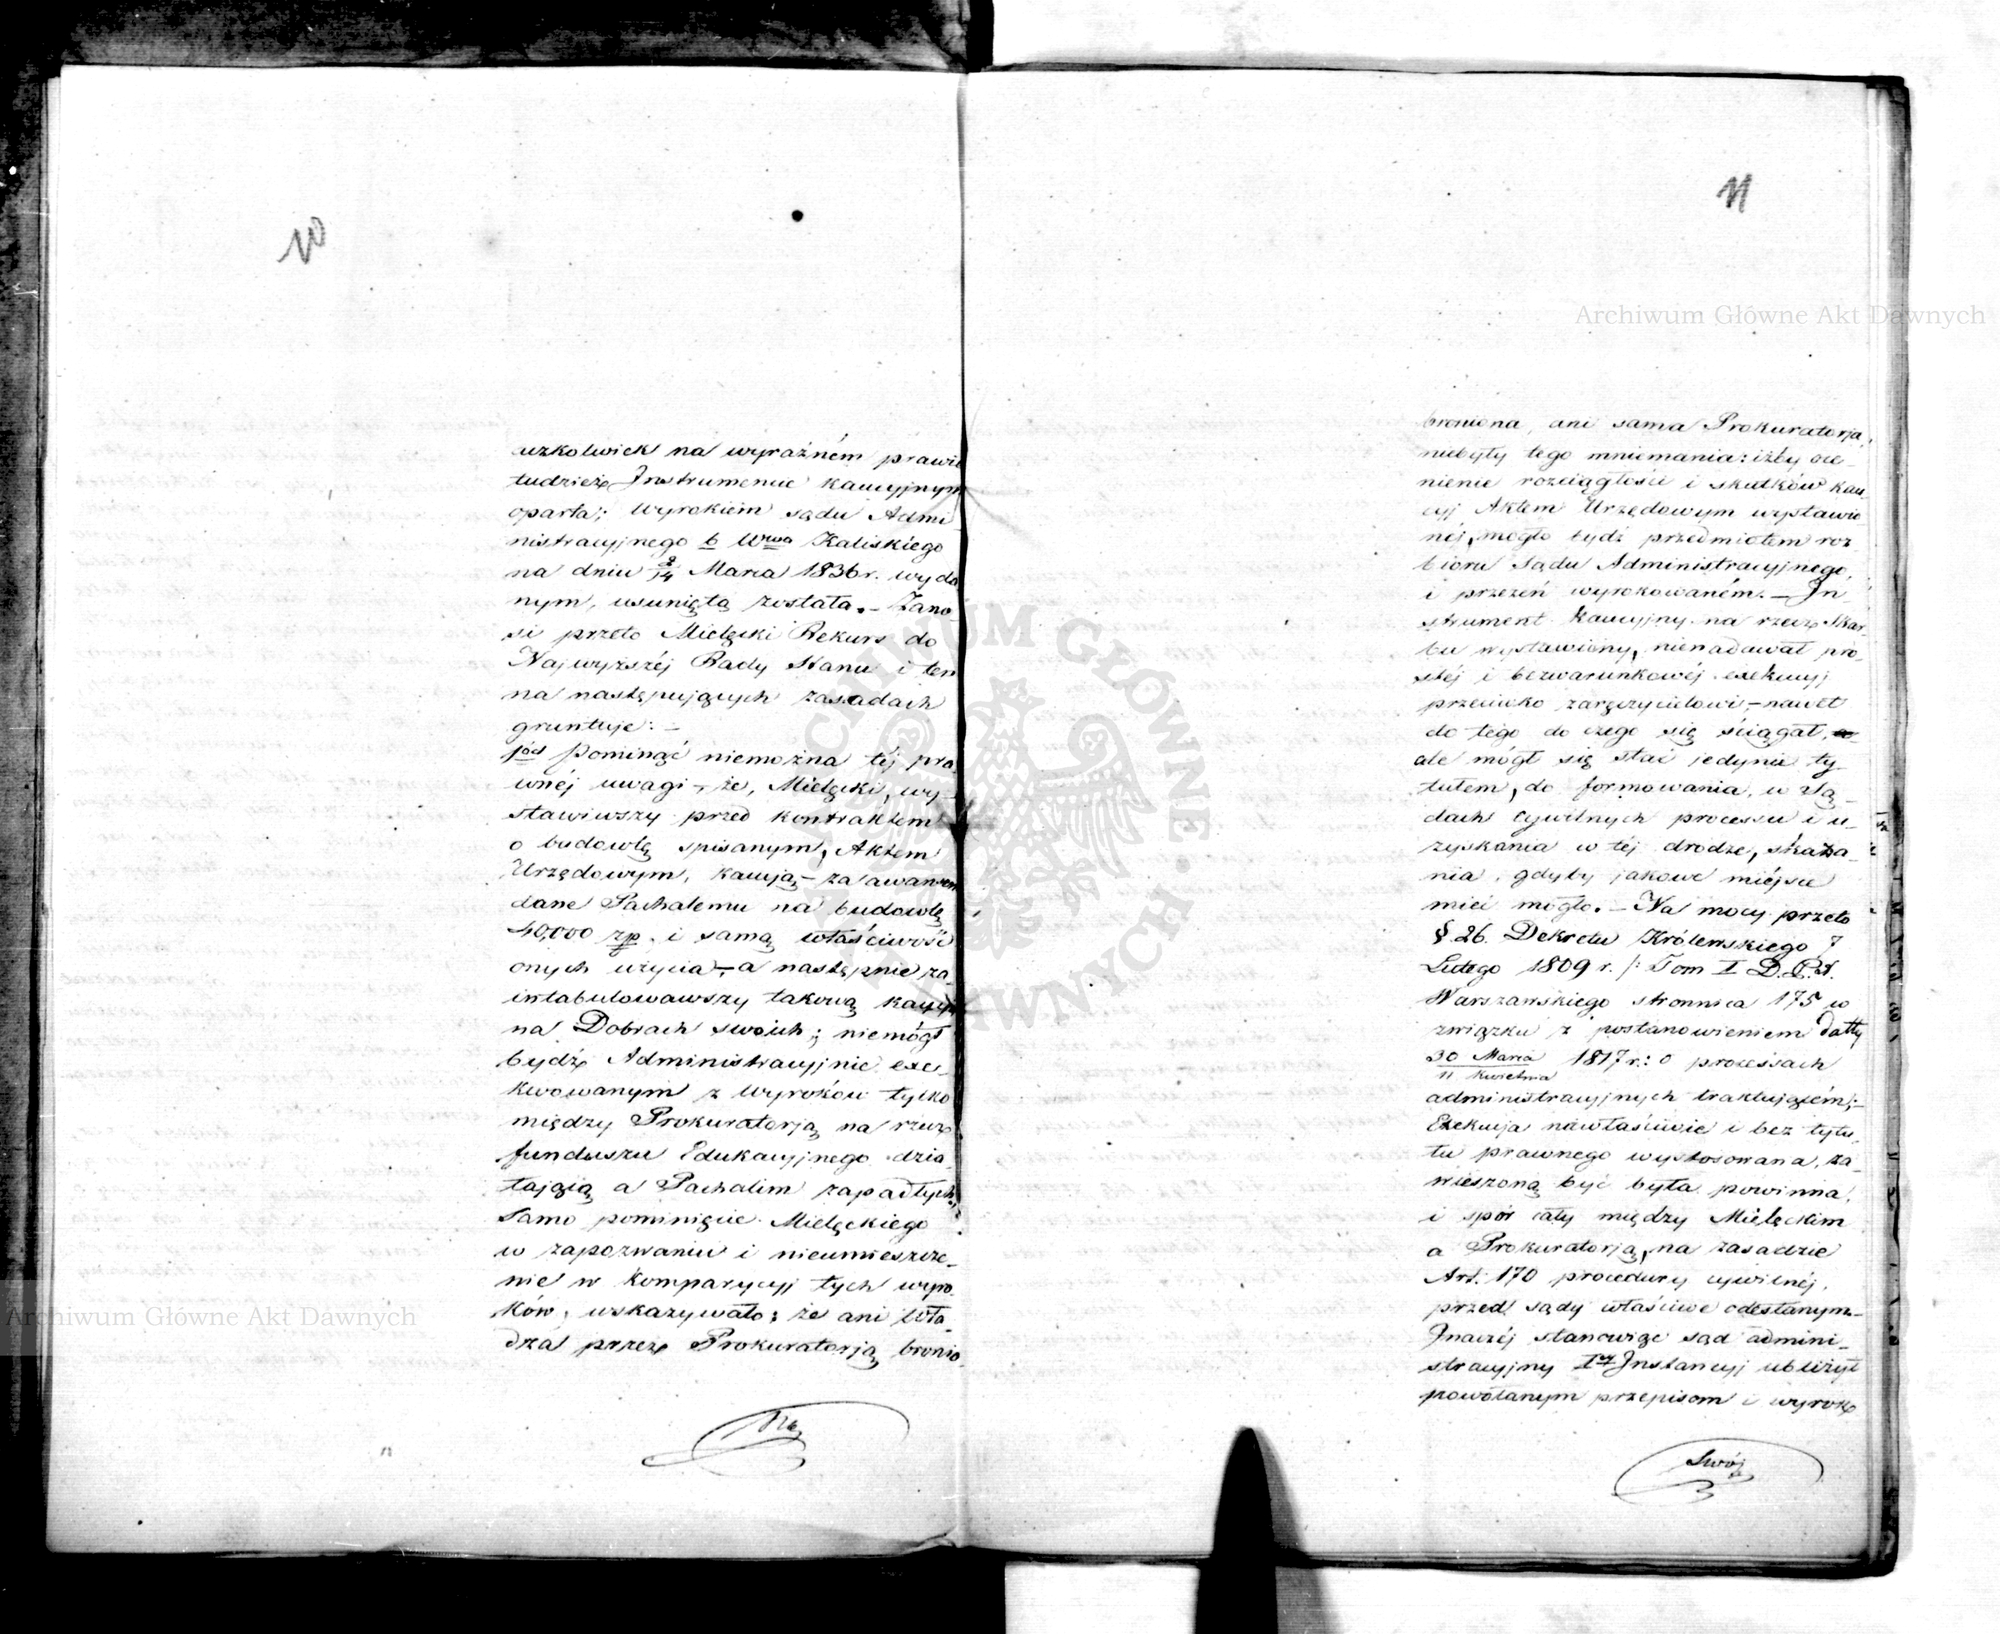 10
uzkolwiek na wyraźném prawie
tudzież Instrumencie kaucyjnym
oparta; Wyrokiem sądu Admi
nistracyjnego b Wwa Kaliskiego
na dniu 2/14 Marca 1836 r. wyda
nym, usuniętą została. – Zano
si przeto Mielęcki Rekurs do
Najwyższéj Rady Stanu i ten
na następujących zasadach
gruntuje: –
1ód Pominąć niemożna téj pra
wnéj uwagi –, że, Mielęcki, wy–
stawiwszy przed kontraktem
o budowlę spisanym, Aktem
Urzędowym, kaucją – za awansem
dane Pachalemu na budowlę
40,000 zp. i samą właściwość
onych użycia –, a następnie za
intabulowawszy takową kaucję
na Dobrach swoich; niemógł
bydź Administracyjnie exe–
kwowanym z Wyroków tylko
między Prokuratorją na rzecz
funduszu Edukacyjnego dzia
łającą a Pachalim zapadłych.
Samo pominięcie Mielęckiego
w zapozwaniu i nieumieszcze–
nie w Komparycyj tych wyro
ków, wskazywało; że ani Wła–
dza przez Prokuratorją bronio
Na
11
broniona, ani sama Prokuratorja,
niebyły tego mniemania: iżby oce–
nienie rozciągłości i skutków kau
cyj Aktem Urzędowym wystawio
néj, mogło bydź przedmiotem roz
bioru Sądu Administracyjnego,
i przezeń wyrokowaném. – In–
strument kaucyjny na rzecz Skar–
bu wystawiony, nienadawał pro–
stéj i bezwarunkowéj exekucyj
przeciwko zaręczycielowi, – nawet
do tego do czego się ściągał,
ale mógł się stać jedynie ty–
tułem, do formowania, w Są–
dach Cywilnych processu i u–
zyskania w téj drodze, skaza–
nia, gdyby jakowe miéjsce
mieć mogło. – Na mocy przeto
§ 26. Dekretu Królewskiego 7
Lutego 1809 r. /: Tom I D. P. X.
Warszawskiego stronnica 175 w
związku z postanowieniem datty
30 Marca / 11 Kwietnia 1817 r.: o processach
administracyjnych traktującém; –
Exekucja niewłaściwie i bez tytu–
łu prawnego wystosowana, za–
wieszoną być była powinna,
i spór cały między Mielęckim
a Prokuratorją, na zasadzie
Art: 170 procedury cywilnéj,
przed sądy właściwe odesłanym –
Inaczéj stanowiąc sąd admini–
stracyjny Iéj Instancyj ubliżył
powołanym przepisom i wyrok
Swój
Archiwum Główne Akt Dawnych
Archiwum Główne Akt Dawnych
ARCHIWUM GŁÓWNE AKT DAWNYCH